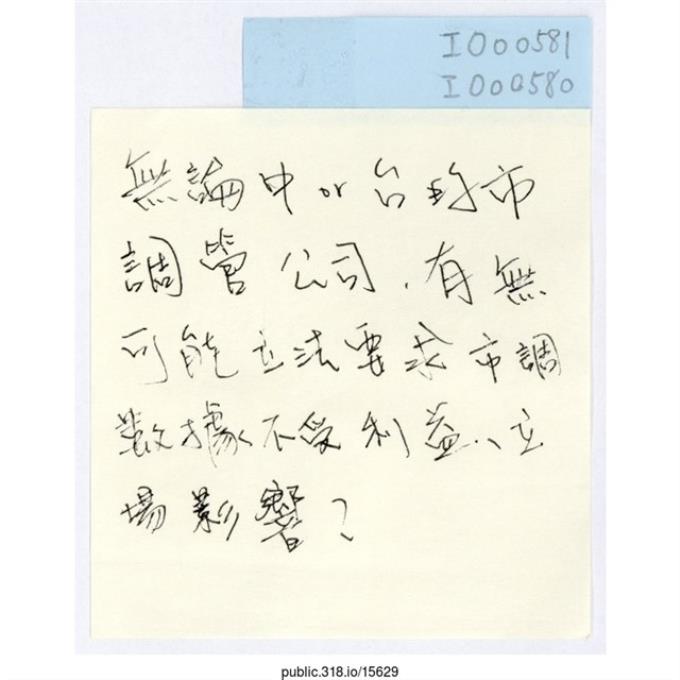 I000581
I000580
無論中or台的市
調管公司,有無
可能立法要求市調
數據不受利益、立
場影響?
public.318.io/15629